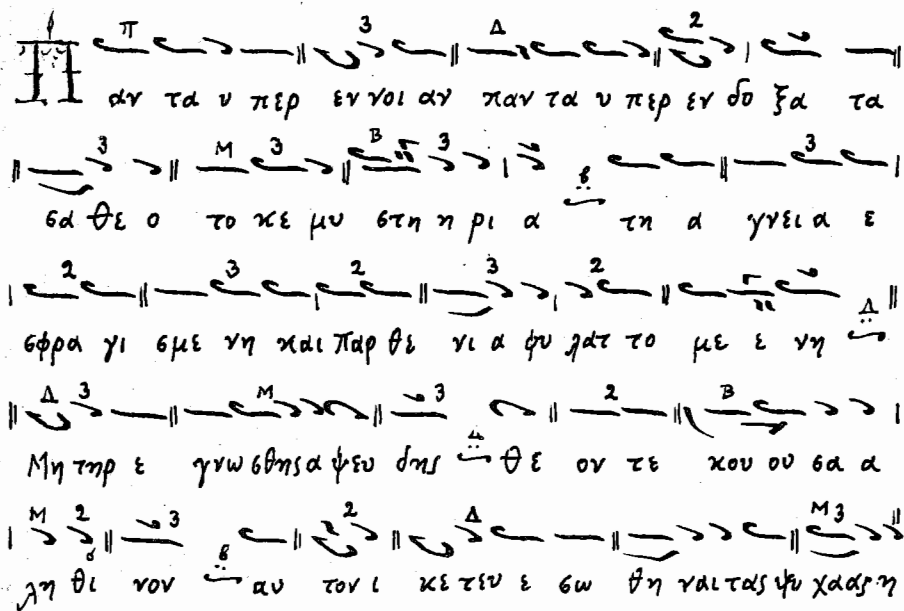 Παν τα υ περ εν νοι αν παν τα υ περ εν δο ξα τα
σα Θε ο το κε μυ στη η ρι α τη α γνει α ε
σφρα γι σμε νη και Παρ θε νι α φυ λατ το με ε νη
Μη τηρ ε γνω σθης α ψευ δης Θε ον τε κου ου σα α
λη θι νον αυ τον ι κε τευ ε σω θη ναι τας ψυ χα ας η